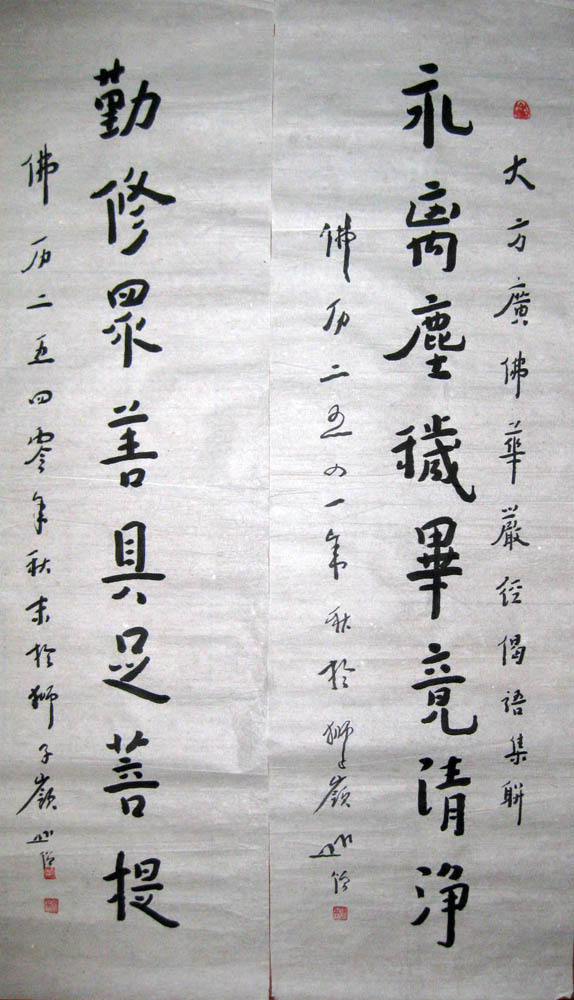 大方廣佛華嚴經偈語集聯
永离塵穢畢竟清浄
佛历二五四一年秋於獅子嶺
勤修眾善具足菩提
佛历二五四零年秋末於獅子嶺